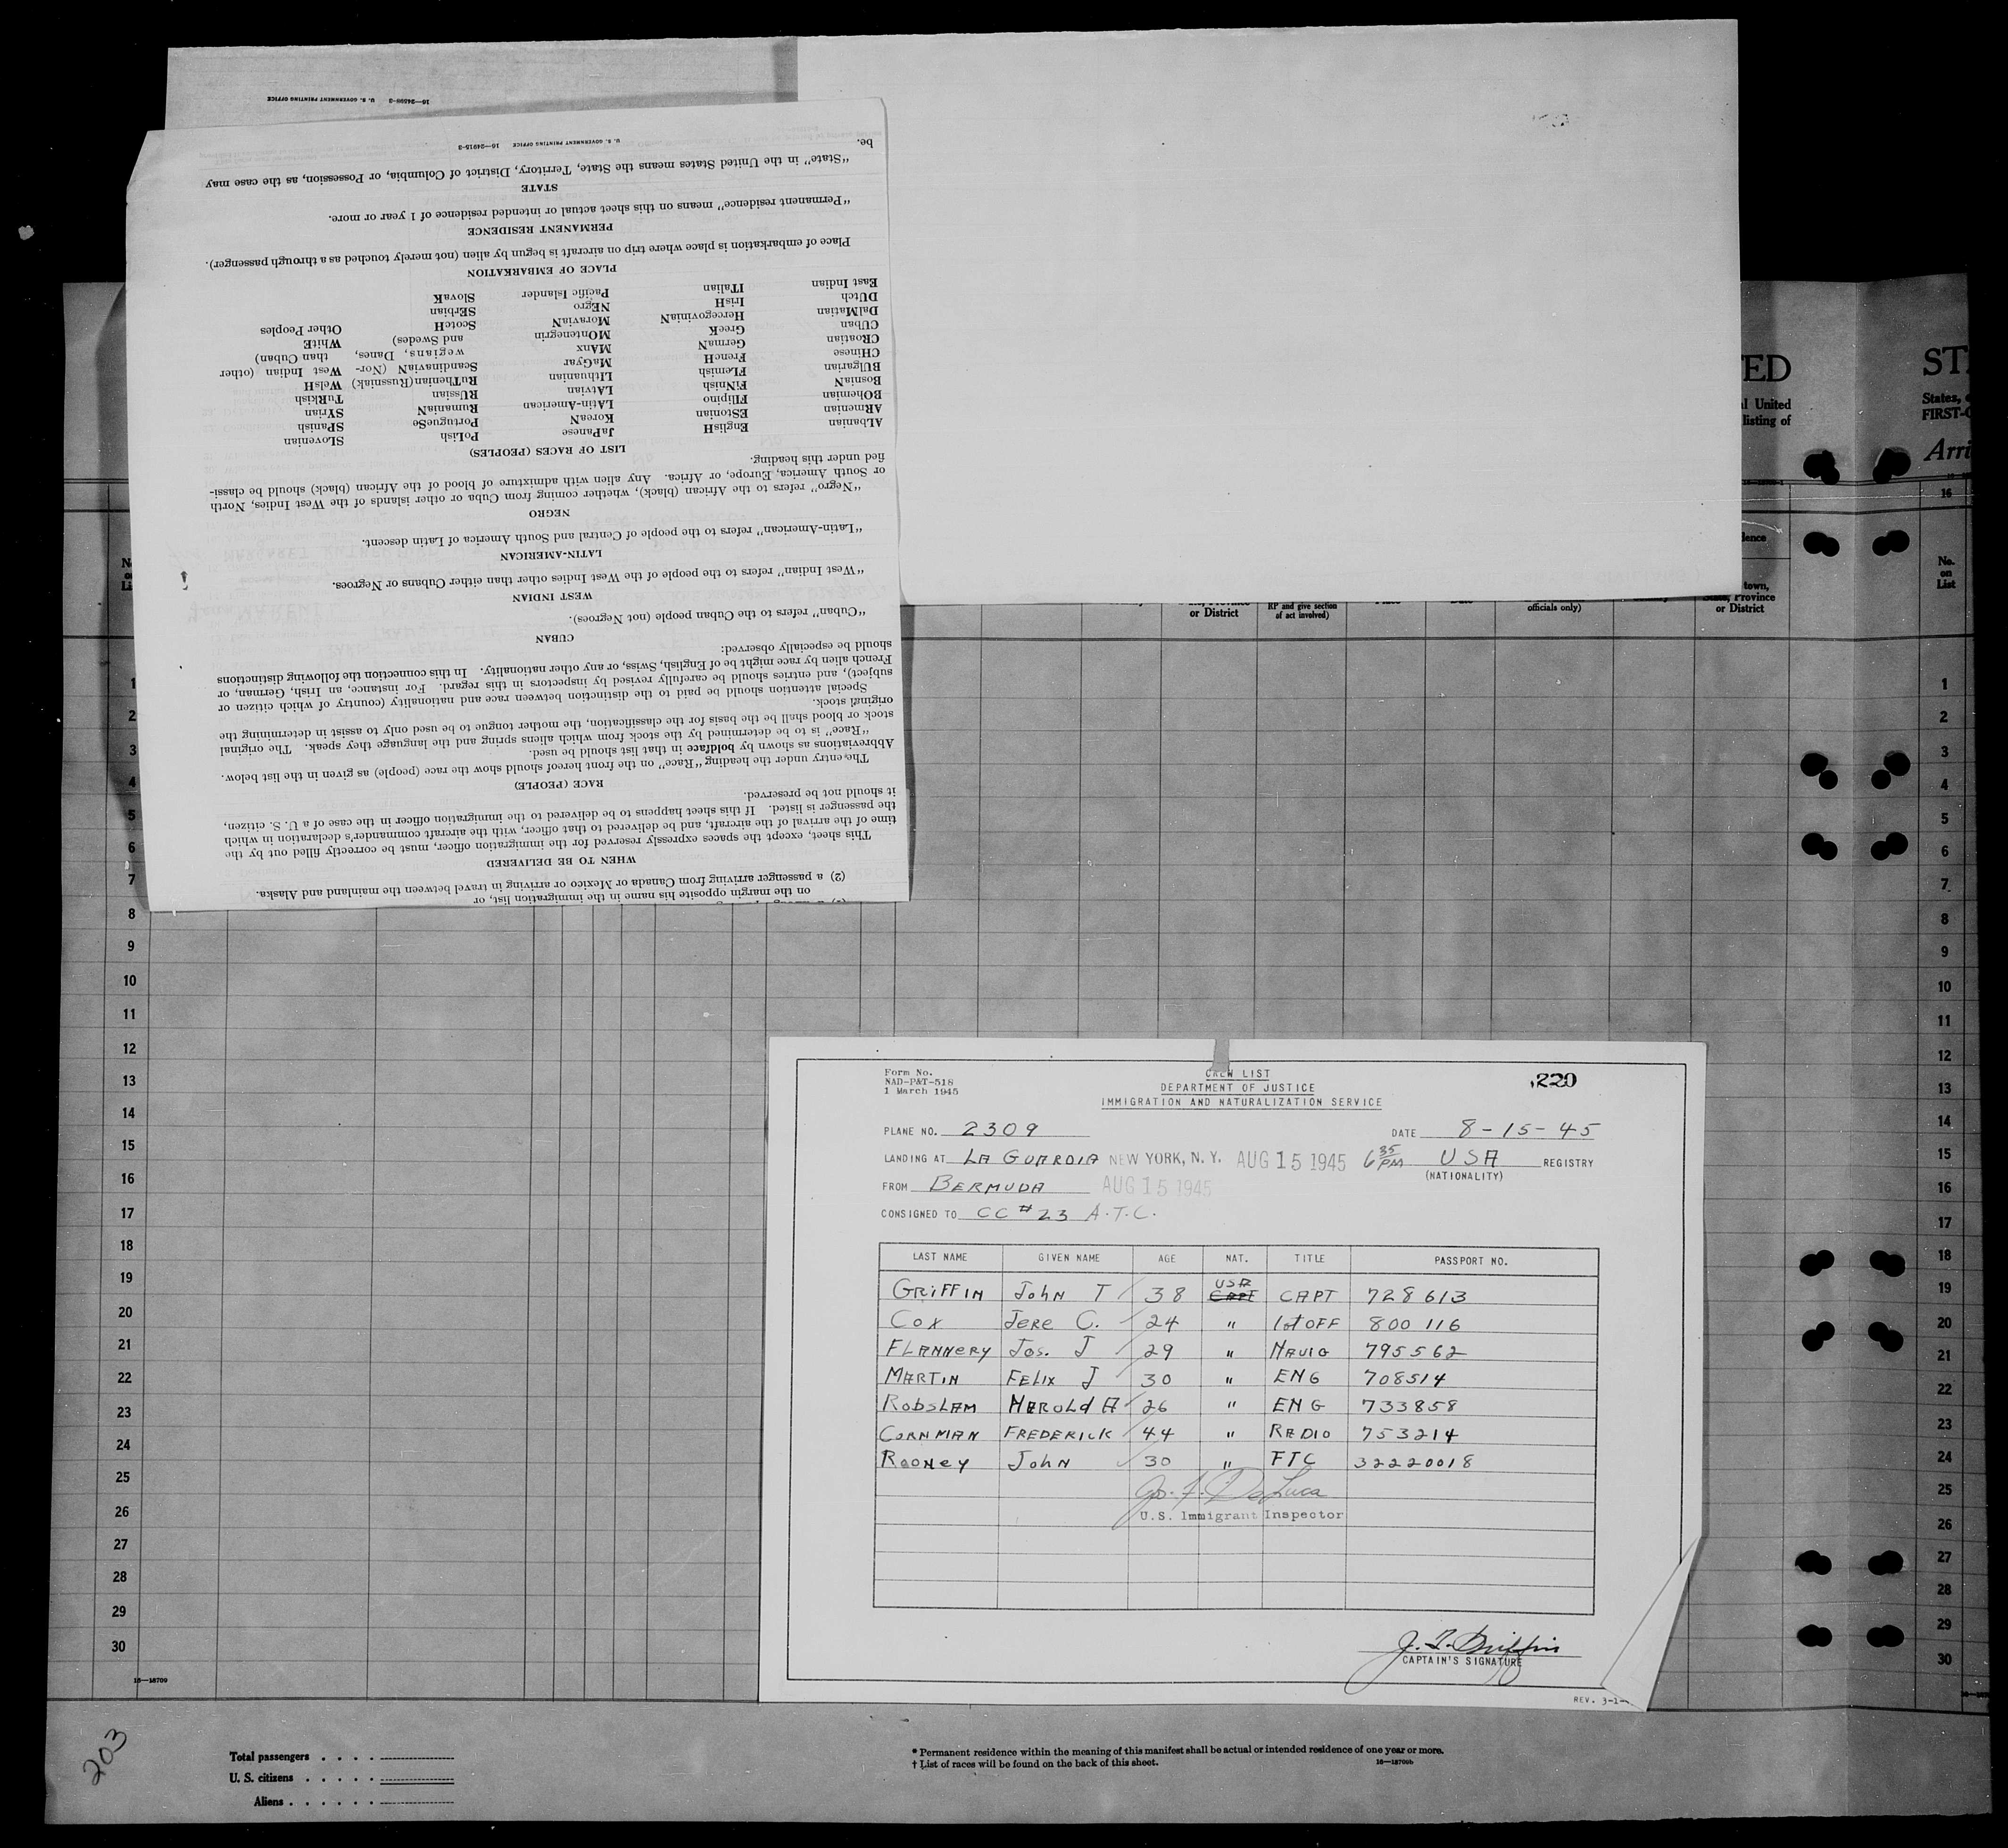 16—24898-3 U. S. GOVERNMENT PRINTING OFFICE
on the margin opposite his name in the immigration list, or
(2) a passenger arriving from Canada or Mexico or arriving in travel between the mainland and Alaska.
WHEN TO BE DELIVERED
This sheet, except the spaces expressly reserved for the immigration officer, must be correctly filled out by the
time of the arrival of the aircraft, and be delivered to that officer, with the aircraft commander's declaration in which
the passenger is listed. If this sheet happens to be delivered to the immigration officer in the case of a U. S. citizen,
it should not be preserved.
RACE (PEOPLE)
The entry under the heading "Race" on the front hereof should show the race (people) as given in the list below.
Abbreviations as shown by boldface in that list should be used.
"Race" is to be determined by the stock from which aliens spring and the language they speak. The original
stock or blood shall be the basis for the classification, the mother tongue to be used only to assist in determining the
original stock.
Special attention should be paid to the distinction between race and nationality (country of which citizen or
subject), and entries should be carefully revised by inspectors in this regard. For instance, an Irish, German, or
French alien by race might be of English, Swiss, or any other nationality. In this connection the following distinctions
should be especially observed:
CUBAN
"Cuban" refers to the Cuban people (not Negroes).
WEST INDIAN
"West Indian" refers to the people of the West Indies other than either Cubans or Negroes.
LATIN-AMERICAN
"Latin-American" refers to the people of Central and South America of Latin descent.
NEGRO
"Negro" refers to the African (black), whether coming from Cuba or other islands of the West Indies, North
or South America, Europe, or Africa. Any alien with admixture of blood of the African (black) should be classi-
fied under this heading.
LIST OF RACES (PEOPLES)
ALbanian EnglisH JaPanese PoLish SLovenian
ARmenian EStonian KoreaN PortugueSe SPanish
BOhemian FIlipino LAtin-American RumaniaN SYrian
BosniaN FiNnish LAtvian RUssian TuRkish
BUlgarian FLemish LIthuanian RuThenian (Russniak) WelsH
CHinese FrencH MaGyar ScandinaviaN (Nor- West Indian (other
CRoatian GermaN MAnx wegians, Danes, than Cuban)
CUban GreeK MOntenegrin and Swedes) WhitE
DalMatian HercegoviniaN MoraviaN ScotcH Other Peoples
DUtch IrisH NEgro SErbian
East Indian ITalian Pacific Islander SlovaK
PLACE OF EMBARKATION
Place of embarkation is place where trip on aircraft is begun by alien (not merely touched as a through passenger).
PERMANENT RESIDENCE
"Permanent residence" means on this sheet actual or intended residence of 1 year or more.
STATE
"State" in the United States means the State, Territory, District of Columbia, or Possession, as the case may
be.
U. S. GOVERNMENT PRINTING OFFICE 16—24915-3
ED
United
listing of
States,
FIRST-
16
or District
RP and give section
of act involved)
officials only)
town,
State, Province
or District
No.
on
List
1 1
2 2
3 3
4 4
5 5
6 6
7 7
8 8
9 9
10 10
11 11
12 12
13 13
14 14
15 15
16 16
17 17
18 18
19 19
20 20
21 21
22 22
23 23
24 24
25 25
26 26
27 27
28 28
29 29
30 30
16—18709
Form No.
NAD-P&T-518
1 March 1945
CREW LIST
DEPARTMENT OF JUSTICE
IMMIGRATION AND NATURALIZATION SERVICE
220
PLANE NO. 2309 DATE 8-15-45
LANDING AT LA GUARDIA NEW YORK, N. Y. AUG 15 1945 6 35 PM USA REGISTRY
(NATIONALITY)
FROM BERMUDA AUG 15 1945
CONSIGNED TO CC #23 A.T.C.
LAST NAME GIVEN NAME AGE NAT. TITLE PASSPORT NO.
GRIFFIN John T 38 USA CAPT CAPT 728613
COX JERE C. 24 " 1st OFF 800 116
FLANNERY Jos. J 29 " NAVIG 795562
MARTIN FELIX J 30 " ENG 708514
RobsLAM HAROLd A 26 " ENG 733858
CORNMAN FREDERICK 44 " RADIO 753214
ROONEY John 30 " FTC 32220018
Jos. F. DeLuca
U.S. Immigrant Inspector
J. T. Griffin
CAPTAIN'S SIGNATURE
REV. 3-1-
203
Total passengers
U. S. citizens
Aliens
* Permanent residence within the meaning of this manifest shall be actual or intended residence of one year or more.
† List of races will be found on the back of this sheet. 16—18709b